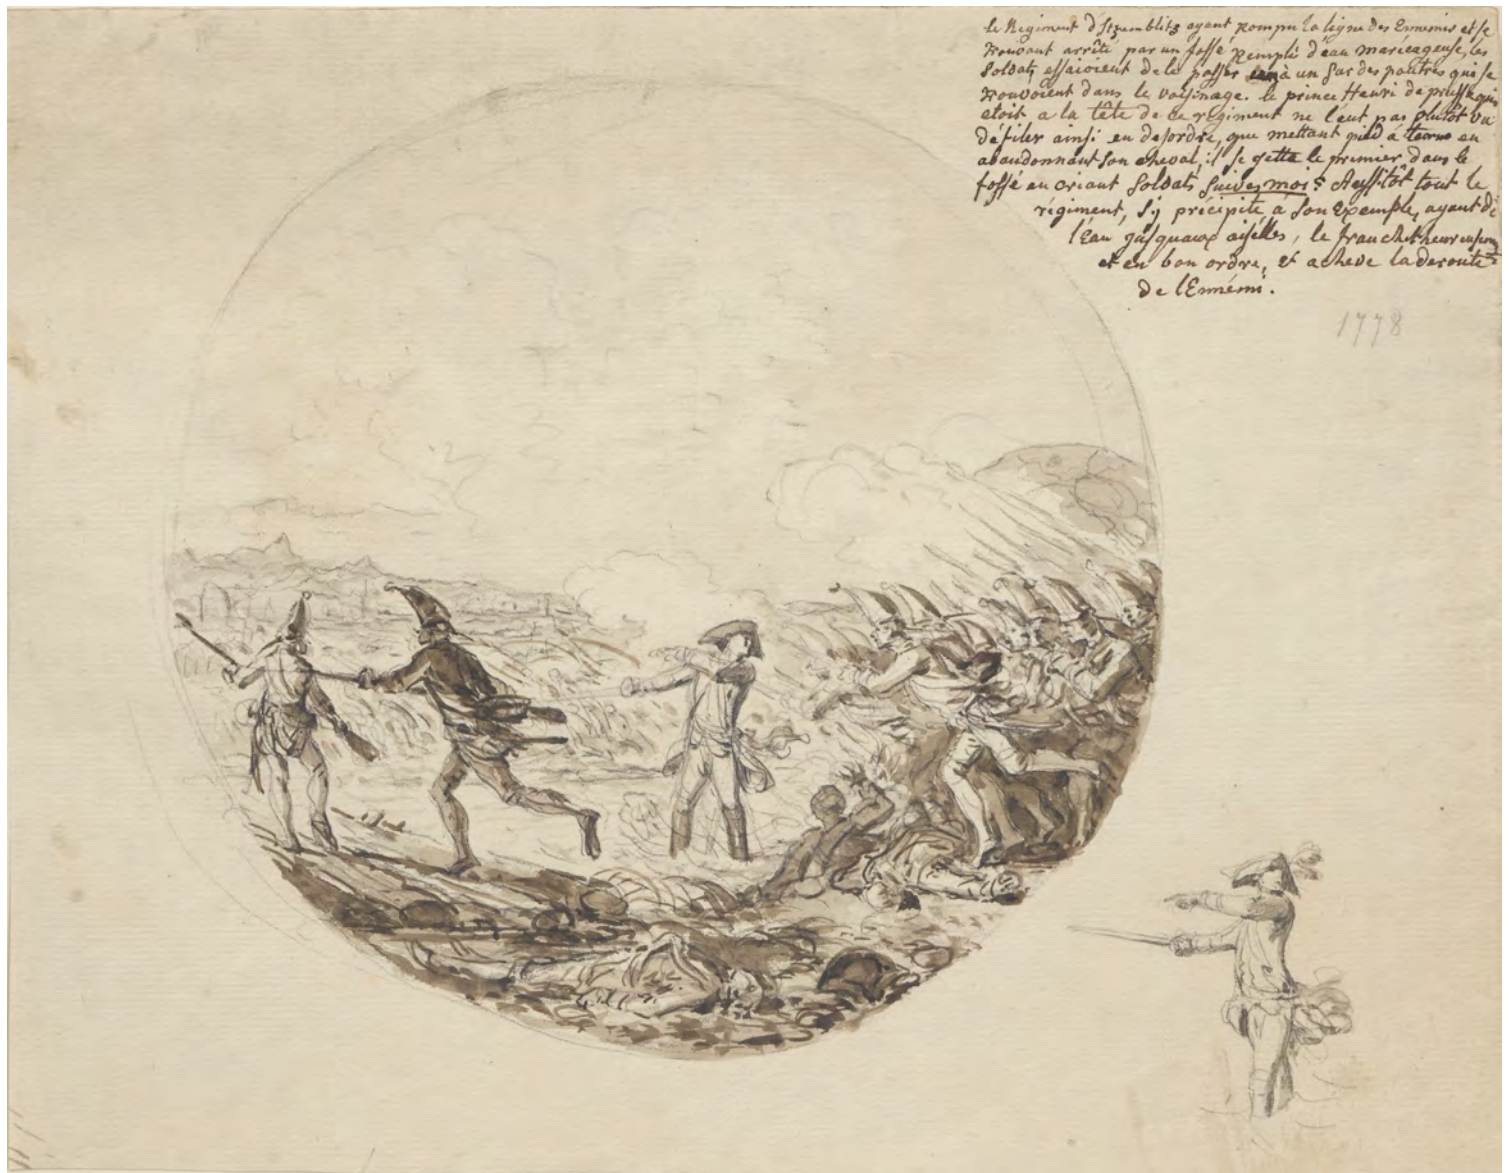 le Regiment d'Itzemblitz ayant rompu la ligne des Ennemis et se
trouvant arrêté par un fossé rempli d'eau marécageuse, les
Soldats essaioient de le passer un à un sur des poutres qui se
trouvoient dans le voisinage. le prince Henri de prusse qui
etoit a la tête de ce regiment ne l'eut pas plutôt vu
défiler ainsi en desordre, que mettant pied à terre en
abandonnant son cheval, il se jette le premier dans le
fossé en criant Soldats suives moi! Aussitôt tout le
régiment, s'y précipite à son exemple, ayant de
l'Eau jusquaux aiselles, le franchit heureusem
et en bon ordre, et acheve la deroute
de l'Ennémi.
1778